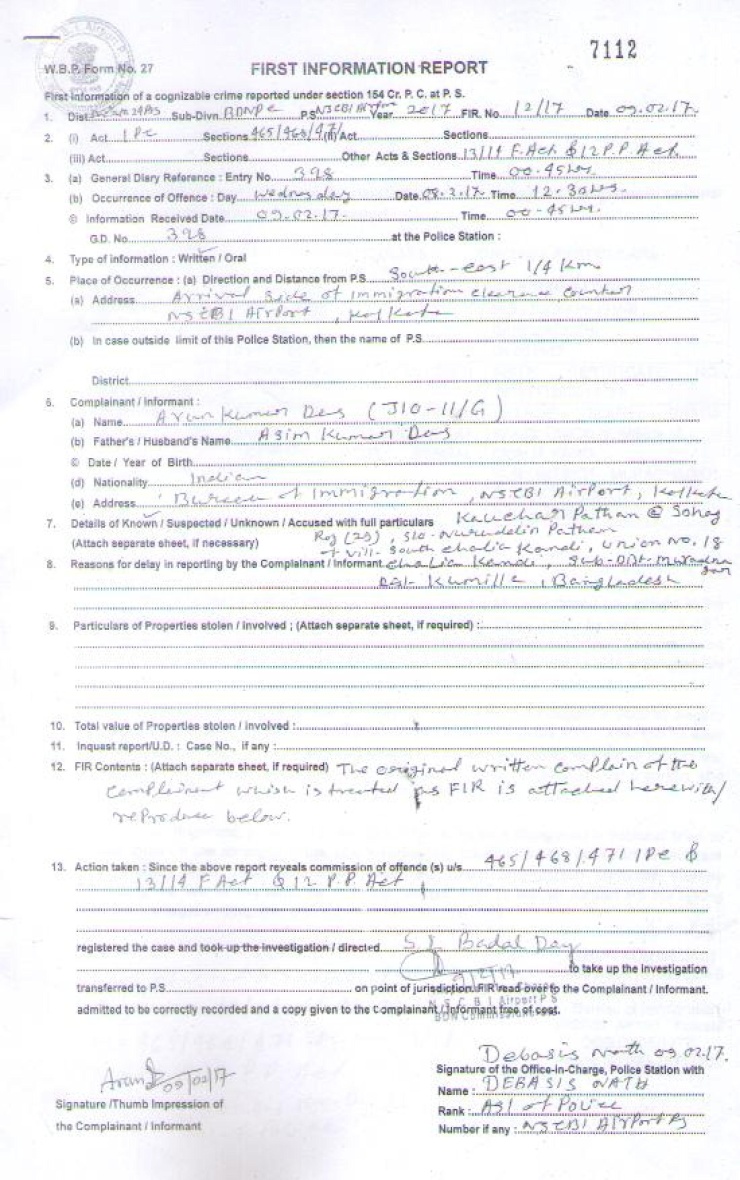 7112
W.B.P. Form No. 27
FIRST INFORMATION REPORT
First Information of a cognizable crime reported under section 154 Cr. P. C. at P. S.
1. Dist. Sub-Divn. BDNPC P.S. NSCBI Airport Year 2017 FIR. No. 12/17 Date 09.02.17.
2. (i) Act IPC Sections 465/468/471 (ii) Act Sections
(iii) Act Sections Other Acts & Sections 13/14 F. Act & 12 P.P Act
3. (a) General Diary Reference : Entry No. 398 Time 00-45 hrs.
(b) Occurrence of Offence : Day Wednesday Date 08.2.17. Time 12-30 hrs.
© Information Received Date 09.02.17. Time 00-45 hrs.
G.D. No. 398 at the Police Station :
4. Type of information : Written / Oral
5. Place of Occurrence : (a) Direction and Distance from P.S. South-east 1/4 Km
(a) Address Arrival side of Immigration clearance counter
NSCBI Airport, Kolkata
(b) In case outside limit of this Police Station, then the name of P.S.
District
6. Complainant / Informant :
(a) Name Arun Kumar Das (JIO-II/G)
(b) Father's / Husband's Name Asim Kumar Das
© Date / Year of Birth
(d) Nationality Indian
(e) Address Bureau of Immigration, NSCBI Airport, Kolkata
7. Details of Known / Suspected / Unknown / Accused with full particulars Kauchar Pathan @ Sohag
(Attach separate sheet, if necessary) Roj (29), S/o- Nuruddin Pathan
of Vill- South Chalia Kandi, Union No. 18
8. Reasons for delay in reporting by the Complainant / Informant Chalia Kandi, Sub-Dist-
Dist- Kumilla, Bangladesh
9. Particulars of Properties stolen / involved ; (Attach separate sheet, if required) :
10. Total value of Properties stolen / involved :
11. Inquest report/U.D. : Case No., if any :
12. FIR Contents : (Attach separate sheet, if required) The original written complain of the
complainent which is treated as FIR is attached herewith/
reproduce below.
13. Action taken : Since the above report reveals commission of offence (s) u/s. 465/468/471 IPC &
13/14 F Act & 12 P.P. Act
registered the case and took up the investigation / directed S.I. Badal Dey
to take up the investigation
transferred to P.S. on point of jurisdiction. FIR read over to the Complainant / Informant.
N S C B I Airport P S
admitted to be correctly recorded and a copy given to the Complainant / Informant free of cost.
Debasis Nath 09.02.17.
Arun 09/02/17
Signature of the Office-in-Charge, Police Station with
Name : DEBASIS NATH
Signature /Thumb Impression of
Rank : ASI of Police
the Complainant / Informant
Number if any : NSCBI AIRPORT PS